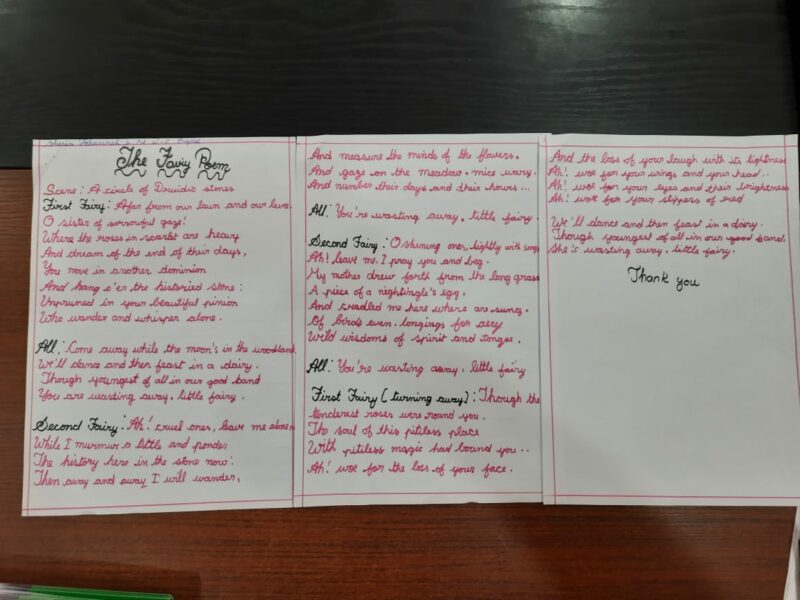 The Faviy Poem
Scene: A circle of Douidic stones
First Fairy: Afar from our lawn and our levee,
O sister of sorrowful gaze!
Where the roses in scarlet are heavy
And dream of the end of their days,
You move in another dominion
And hang o'er the historied stone:
Unpruned is your beautiful pinion
Who wander and whisper alone.
All: Come away while the moon's in the woodland,
We'll dance and then feast in a dairy.
Though youngest of all in our good band
You are wasting away, little fairy.
Second Fairy: Ah! cruel ones, leave me alone
While I murmur a little and ponder
The history here in the stone now:
Then away and away I will wander,
And measure the minds of the flowers.
And gaze on the meadow-mice wary.
And number their days and their hours...
All: You're wasting away, little fairy.
Second Fairy: O shining ones, lightly with song
Ah! leave me, I pray you and beg.
My mother drew forth from the long grass
A piece of a nightingle's egg.
And cradled me here where are sung.
Of birds even, longings for aery
Wild wisdoms of spirit and tongue.
All: You're wasting away, little fairy
First Fairy (turning away): Though the
tenderest roses were round you.
The soul of this pitiless place
With pitiless magic had bound you...
Ah! woe for the loss of your face.
And the loss of your laugh with its lightness
Ah! woe for your wings and your head..
Ah! woe for your eyes and their brightness
Ah! woe for your slippers of red
We'll dance and then feast in a dairy.
Though youngest of all in our good band.
She's wasting away, little fairy.
Thank you